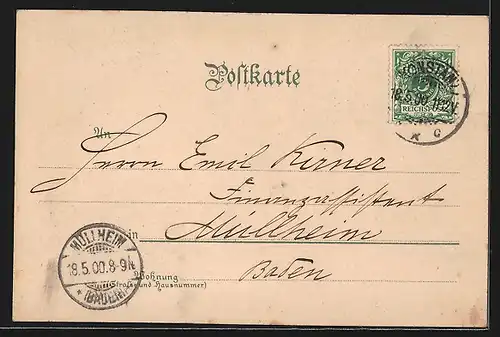 Postkarte
KONSTANZ
18.5.00.11-12V.
5
REICHSPOST
* c
An
Herrn Emil Kirner
Finanzassistent
in Müllheim
Baden
MÜLLHEIM
18.5.00.8-9N
* (BADEN) *
Wohnung
(Straße und Hausnummer)